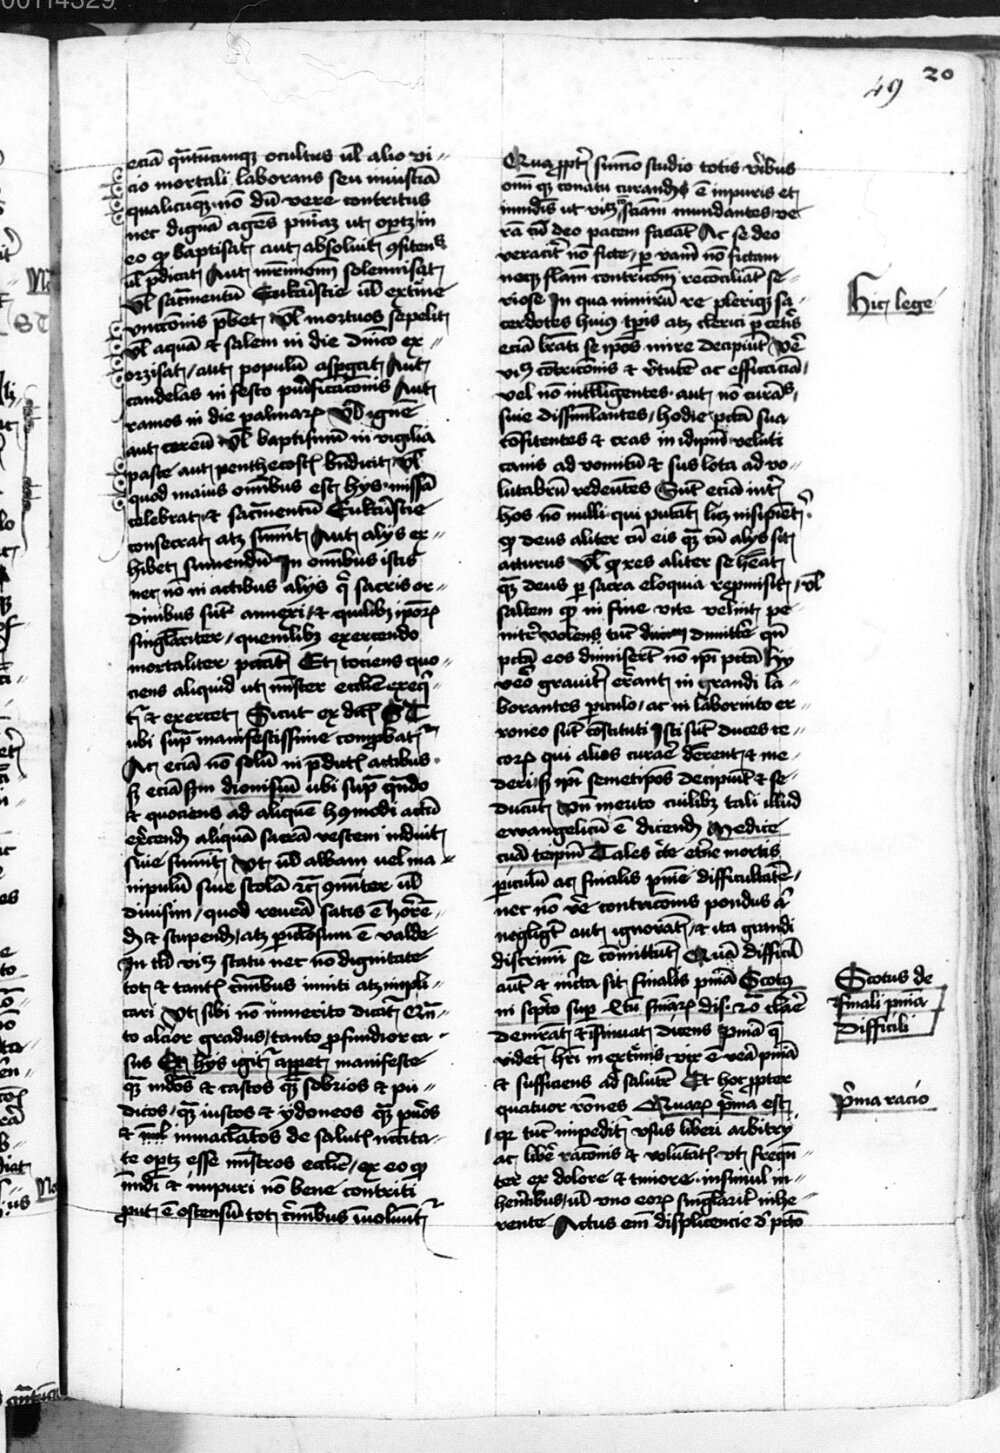 00114329
49 20
eciā qn̄tūcunqꝫ ocultus ul̄ alio vi
cio mortali laborans seu iniusticiā
qualicūqꝫ nō dū vere contritus
nec dignā agēs pn̄iaꝫ ut optꝫ in
eo qꝫ baptisat aut absoluit ꝯfitens
ul̄ p̄dicat Aut mr̄imoniū solemnisat
vl̄ sacr̄mentū Eukr̄istie ul̄ extr̄me
vncc̄onis p̄bet vl̄ mortuos sepelit
vl̄ aquā et salem in die dn̄ico ex
orzisat / aut populū asp̄git Aut
candelas in festo pur̄ificac̄onis Aut
ramos in die palmaꝝ vl̄ ignē
aut cereū vl̄ baptismū in vigilia
pasce aut penthecost̄ bn̄dicit vl̄
quod maius om̄ibus est hys missā
celebrat et sacr̄mentū Eukr̄istie
consecrat atqꝫ sumit Aut alys ex
hibet sumendū In om̄ibus istis
nec nō in actibus alys q̄ sacris or
dinibus sūt annexi / et quilibꝫ ip̄oꝝ
singlariter / quemlibꝫ exercendo
mortaliter peccat Et tociens quo
ciens aliquid ut mīster eccl̄ie exeq̄
t̄ et exercet Sicut ex dict̄ ST
ubi sup̄ manifestissime comprobat̄
Ac eciā nō solū in p̄dict̄ actibus
sꝫ eciā scd̄m dionisiū ubi sup̄ qn̄do
et quociens ad aliquē hꝰmodi actū
exr̄cend̄ aliquā sacrā vestem induit
siue sumit vt ul̄ albam uel ma
nipulū siue stolā etc̄ ꝯiunter ul̄
diuisim / quod reuerā satis ē horrē
d̄ et stupend̄ / atqꝫ piculosum ē valde
In tali viꝫ statu nec nō dignitate
tot et tantis cr̄mībus iniiti atqꝫ inpli
cari vt sibi nō inmerito dicat̄ Qn̄
to alcior gradus / tanto profundior ca
sus Ex hys igit̄ apparet manifeste
qꝫ mūdos et castos qꝫ sobrios et pu
dicos / qꝫ iustos et ydoneos qꝫ puros
et inmaclatos de salut̄ nc̄cita
te optꝫ esse mīstros eccl̄ie / ex eo qꝫ
inmūdi et inpuri nō bene contriti
put ē ostensū tot cr̄mībus inuolunt̄
Qua propt̄ sumo studio totis virībus
om̄i qꝫ conatu curandū ē inpuris et
inmūdis ut viꝫ ꝯsciam mundantes ve
rā cū deo pacem faciāt Ac se deo
veracit̄ nō ficte / p uam̄ nō fictam
neqꝫ flam contric̄onem reconciliāt se
riose In qua nimirū re pleriqꝫ sa
cerdotes huius tp̄is atqꝫ clerici p̄ cet̄is
eciā lr̄ati se ip̄os mire decipiūt Ver̄e
viꝫ cōtric̄onis et v̄tutē ac efficaciā
vel nō intelligentes aut nō curātes
siue dissimulantes / hodie pctā sua
cōfitentes et cras in idip̄m veluti
canis ad vomitū et sus lota ad vo
lutabrū redeuntes Sūt eciā int̄
hos nō nulli qui putāt licꝫ insipient̄
qꝫ deus aliter cū eis qꝫ cū alys sit
acturus vl̄ qꝫ res aliter se hēat
qꝫ deus p sacra eloquia repromisit / vl̄
saltem qꝫ in fine vite velint pe
nitere volens tūc dimitt̄e qn̄
pctā eos dimisert̄ nō ip̄i pctā hy
vero grauit̄ errant in grandi la
borantes piculo / ac in laborinto er
roneo sūt cōstituti Isti sūt duces ce
corꝝ qui alios curare deberent et me
deri / sꝫ ip̄i semetipos decipiūt et se
ducūt vn̄ merito cuilibꝫ tali illud
ewangelicū ē dicend̄ Medice
cura teip̄m Tales c̄te etn̄e mortis
piculū ac finalis pn̄ie difficultatē
nec nō ver̄e contric̄onis pondus aū
negligūt aut ignorāt / et ita grandi
discrimini se cōmittūt Quā difficil̄
aūt et inc̄ta sit finalis pn̄ia Scotus
in scp̄to sup̄ 4tū sniaꝝ dis 20 clare
demr̄at et isinuat dicens pn̄ia q̄
videt̄ hr̄i in extr̄mis vix ē vera pn̄ia
et sufficiens ad salutē Et hoc propter
quatuor rōnes Quaꝝ p̄ma est
qꝛ tūc impedit̄ vsus liberi arbitry
ac libere rac̄onis et volūtat̄ vt frequen
ter ex dolore et timore insimul in
hentibus / ul̄ vno eoꝝ singlarit̄ inhe
rente Actus em̄ displicencie d̄ pctō
Hic lege
Scotus de
finali pn̄ia
difficili
p̄ma racio